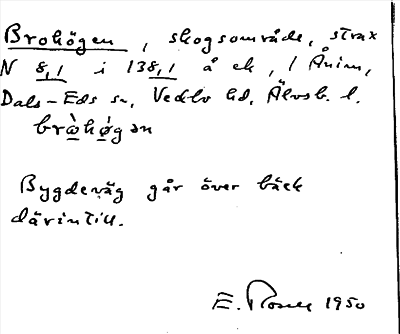 Brohögen, skogsområde, strax
N 8,1 i 138,1 å ek, i Ånim,
Dals-Eds sn, Vedbo hd, Älvsb. l.
bròhǿgən
Bygdeväg går över bäck
därintill.
E. 1950